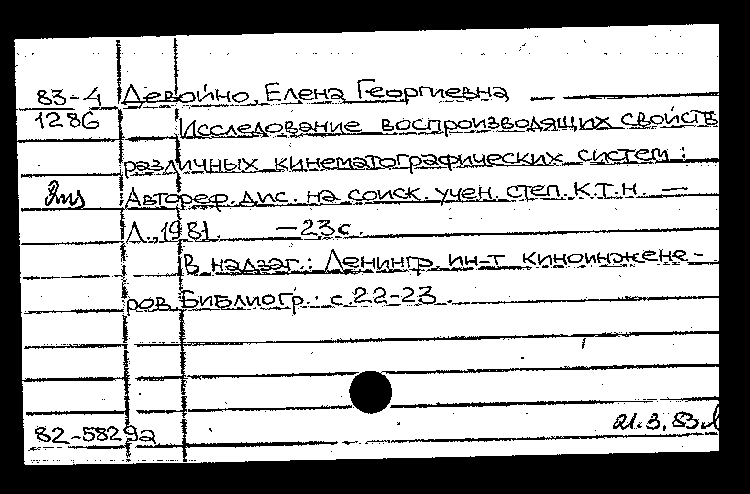 83-4 Девойно, Елена Георгиевна —
1286 Исследование воспроизводящих свойств
различных кинематографических систем :
Автореф. дис. на соиск. учен. степ. К.Т.Н. —
Л., 1981. — 23 с.
В надзаг.: Ленингр. ин-т киноинжене-
ров Библиогр.: с 22-23.
82-5829а 21.3.83